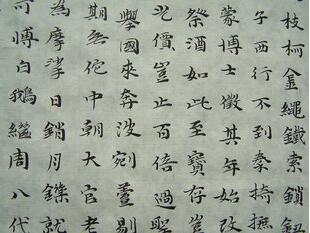 枝柯金繩鐵索鎖鈕
子西行不到秦掎摭
蒙博士徵其年始改
祭酒如此至寶存豈
光價豈止百倍過聖
擧國來奔波剜剔
期無佗中朝大官老
為摩挲日銷月鑠就
可博白鵝繼周八代